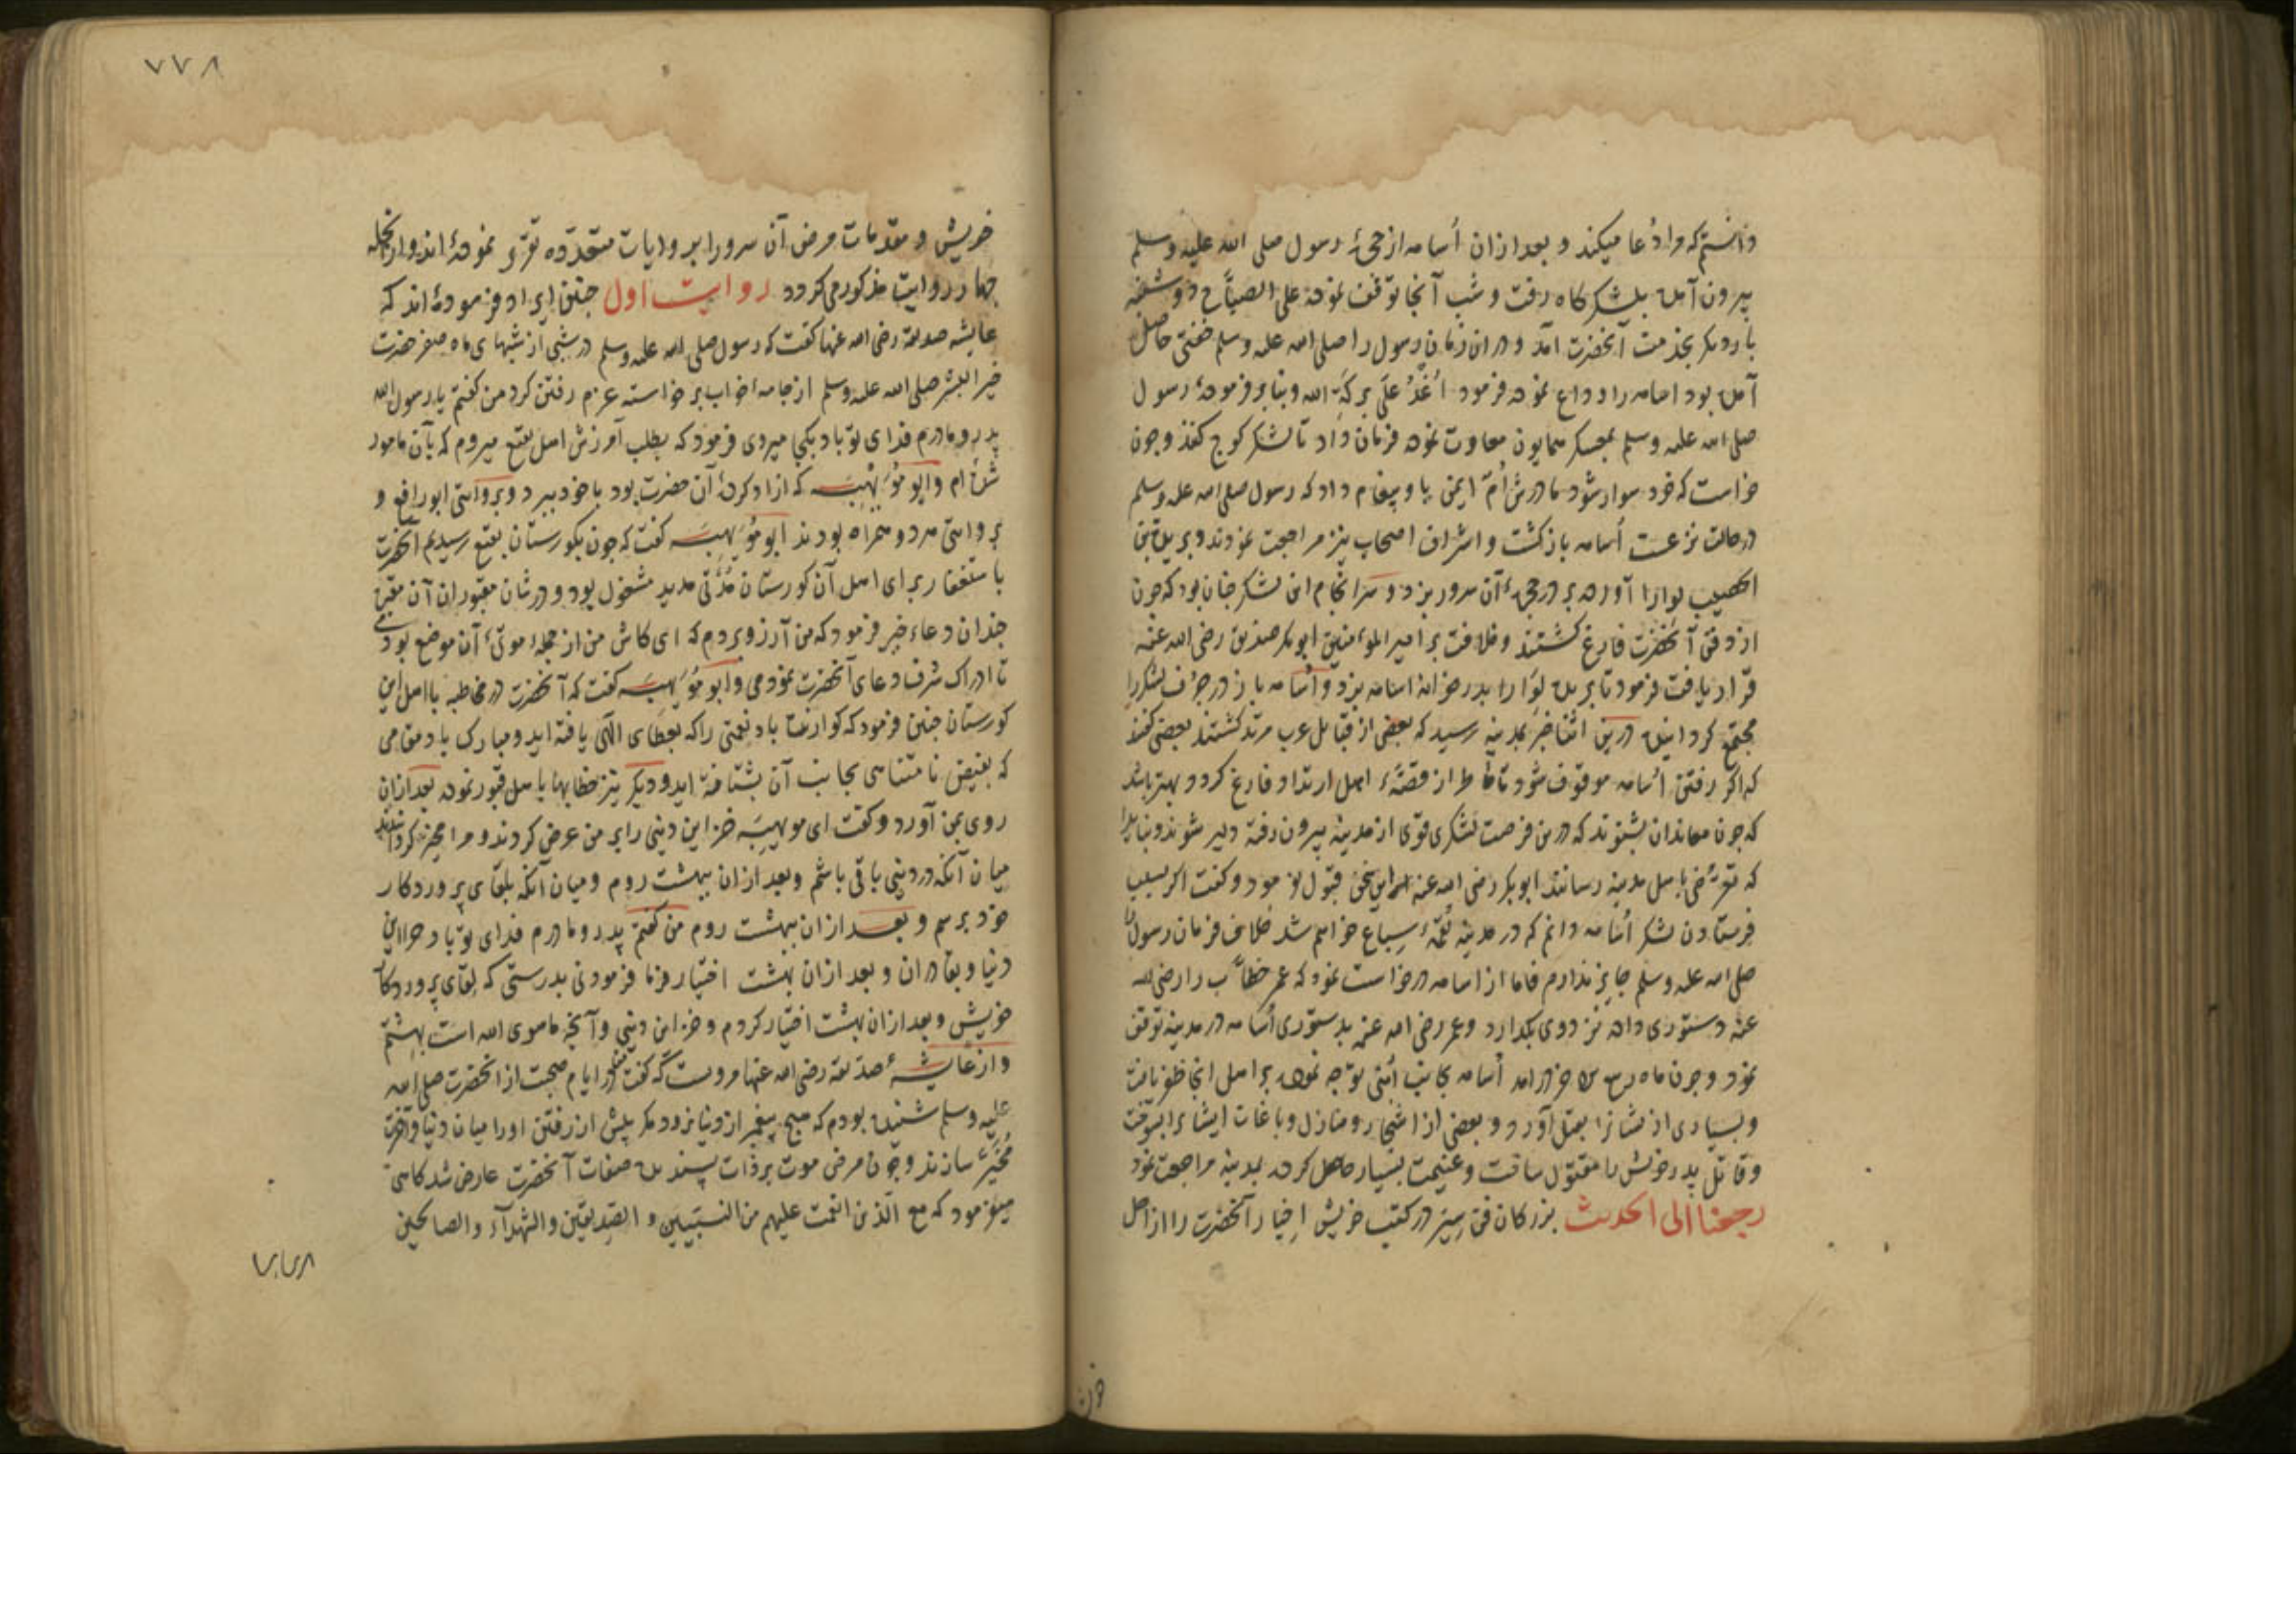 دانستم که مرا دعا میکند و بعد ازان اُسامه از حجرهٔ رسول صلی الله علیه وسلم
بیرون آمده بلشکرگاه رفت و شب آنجا توقف نموده علی الصباح دوشنبه
بار دیگر بخدمت آنحضرت آمد و دران زمان رسول را صلی الله علیه وسلم خفتی حاصل
آمده بود اسامه را وداع نموده فرمود اُغدُ عَلی برکةِ الله و بنابر فرمودهٔ رسول
صلی الله علیه وسلم بمعسکر همایون معاودت نموده فرمان داد تا لشکر کوچ کنند و چون
خواست که خود سوار شود مادرش اُمّ ایمن باو پیغام داد که رسول صلی الله علیه وسلم
در حالت نزعست اُسامه بازگشت و اشراف اصحاب نیز مراجعت نمودند و بریدة بن
الحصیب لوا را آورده بر در حجرهٔ آن سرور بزد و سرانجام این لشکر چنان بود که چون
از دفن آنحضرت فارغ گشتند و خلافت بر امیر المؤمنین ابوبکر صدیق رضی الله عنه
قرار یافت فرمود تا بریده لوا را بدر خانهٔ اسامه بزد و اُسامه باز در جرف لشکر را
مجتمع گردانیده درین اثنا خبر بمدینه رسید که بعضی از قبایل عرب مرتد گشتند بعضی گفتند
که اگر رفتن اُسامه موقوف شود تا خاطر از قصّهٔ اهل ارتداد فارغ گردد بهتر باشد
که چون معاندان بشنوند که درین فرصت لشکری قوی از مدینه بیرون رفته دلیر شوند و نباید
که تعرّضی باهل مدینه رسانند ابوبکر رضی الله عنه این سخن قبول نفرمود و گفت اگر بسبب
فرستادن لشکر اُسامه دانم که در مدینه لقمهٔ سباع خواهم شد خلاف فرمان رسول
صلی الله علیه وسلم جایز ندارم فاما از اسامه درخواست نمود که عمر خطّاب را رضی الله
عنه دستوری داده نزد وی بگذارد و عمر رضی الله عنه بدستوری اُسامه در مدینه توقف
نمود و چون ماه ربیع الآخر درآمد اُسامه بجانب اُبنی توجه نموده بر اهل آنجا ظفر یافت
و بسیاری از ایشانرا بقتل آورد و بعضی از اشجار و منازل و باغات ایشانرا بسوخت
و قاتل پدر خویش را مقتول ساخت و غنیمت بسیار حاصل کرده بمدینه مراجعت نمود
رجعنا الی الحدیث بزرگان فن سِیَر در کتب خویش اِخبار آنحضرت را از اجل
۷۷۸
خویش و مقدمات مرض آن سرور را بروایات متعدّده تقریر نمودهٔ اند و ازانجمله
چهار روایت مذکور می گردد روایت اول چنین ایراد فرموده اند که
عایشه صدیقه رضی الله عنها گفت که رسول صلی الله علیه وسلم در شبی از شبهای ماه صفر حضرت
خیر البشر صلی الله علیه وسلم از جامهٔ خواب برخواسته عزم رفتن کرد من گفتم یا رسول الله
پدر و مادرم فدای تو باد بکجا میروی فرمود که بطلب آمرزش اهل بقیع میروم که بآن مامور
شده ام و ابو مُوَیهبه که ازاد کردهٔ آن حضرت بود با خود ببرد و بروایتی ابو رافع و
بروایتی هر دو همراه بودند ابو مُوَیهبه گفت که چون بگورستان بقیع رسیدیم آنحضرت
باستغفار برای اهل آن گورستان مُدّتی مدید مشغول بود و در شان مقبوران آن مقبره
چندان دعاء خیر فرمود که من آرزو بردم که ای کاش من از جملهٔ موتیٰ آن موضع بودمی
تا ادراک شرف دعای آنحضرت نمودمی و ابو مُوَیهبه گفت که آنحضرت در مخاطبه با اهل این
گورستان چنین فرمود که گوارنده باد نعمتی را که بعطای الهی یافته اید و مبارک باد مقامی
که بفیض نامتناهی بجانب آن بشتافتهٔ اید و دیگر نیز خطابها با اهل قبور نموده بعد ازان
روی بمن آورد و گفت ای موهیبه خزاین دینی را بر من عرض کردند و مرا مخیّر گردانیدند
میان آنکه در دینی باقی باشم و بعد ازان ببهشت روم و میان آنکه بلقای پروردگار
خود برسم و بعد ازان ببهشت روم من گفتم پدر و مادرم فدای تو باد خزاین
دنیا و بقا دران و بعد ازان بهشت اختیار فرما فرمود نی بدرستی که لقای پروردگار
خویش و بعد ازان بهشت اختیار کردم و خزاین دینی و آنچه ماسوی الله است بهشتم
و از عایشهٔ صدّیقه رضی الله عنها مرویست که گفت من در ایام صحّت از آنحضرت صلی الله
علیه وسلم شنیده بودم که هیچ پیغمبر از دنیا نرود مگر پیش از رفتن او را میان دنیا و آخرت
مُخیّر سازند و چون مرض موت بر ذات پسندیده صفات آنحضرت عارض شد گاهی
میفرمود که مع الّذین انعمت علیهم من النبیین و الصّدیقین و الشهدآء و الصالحین